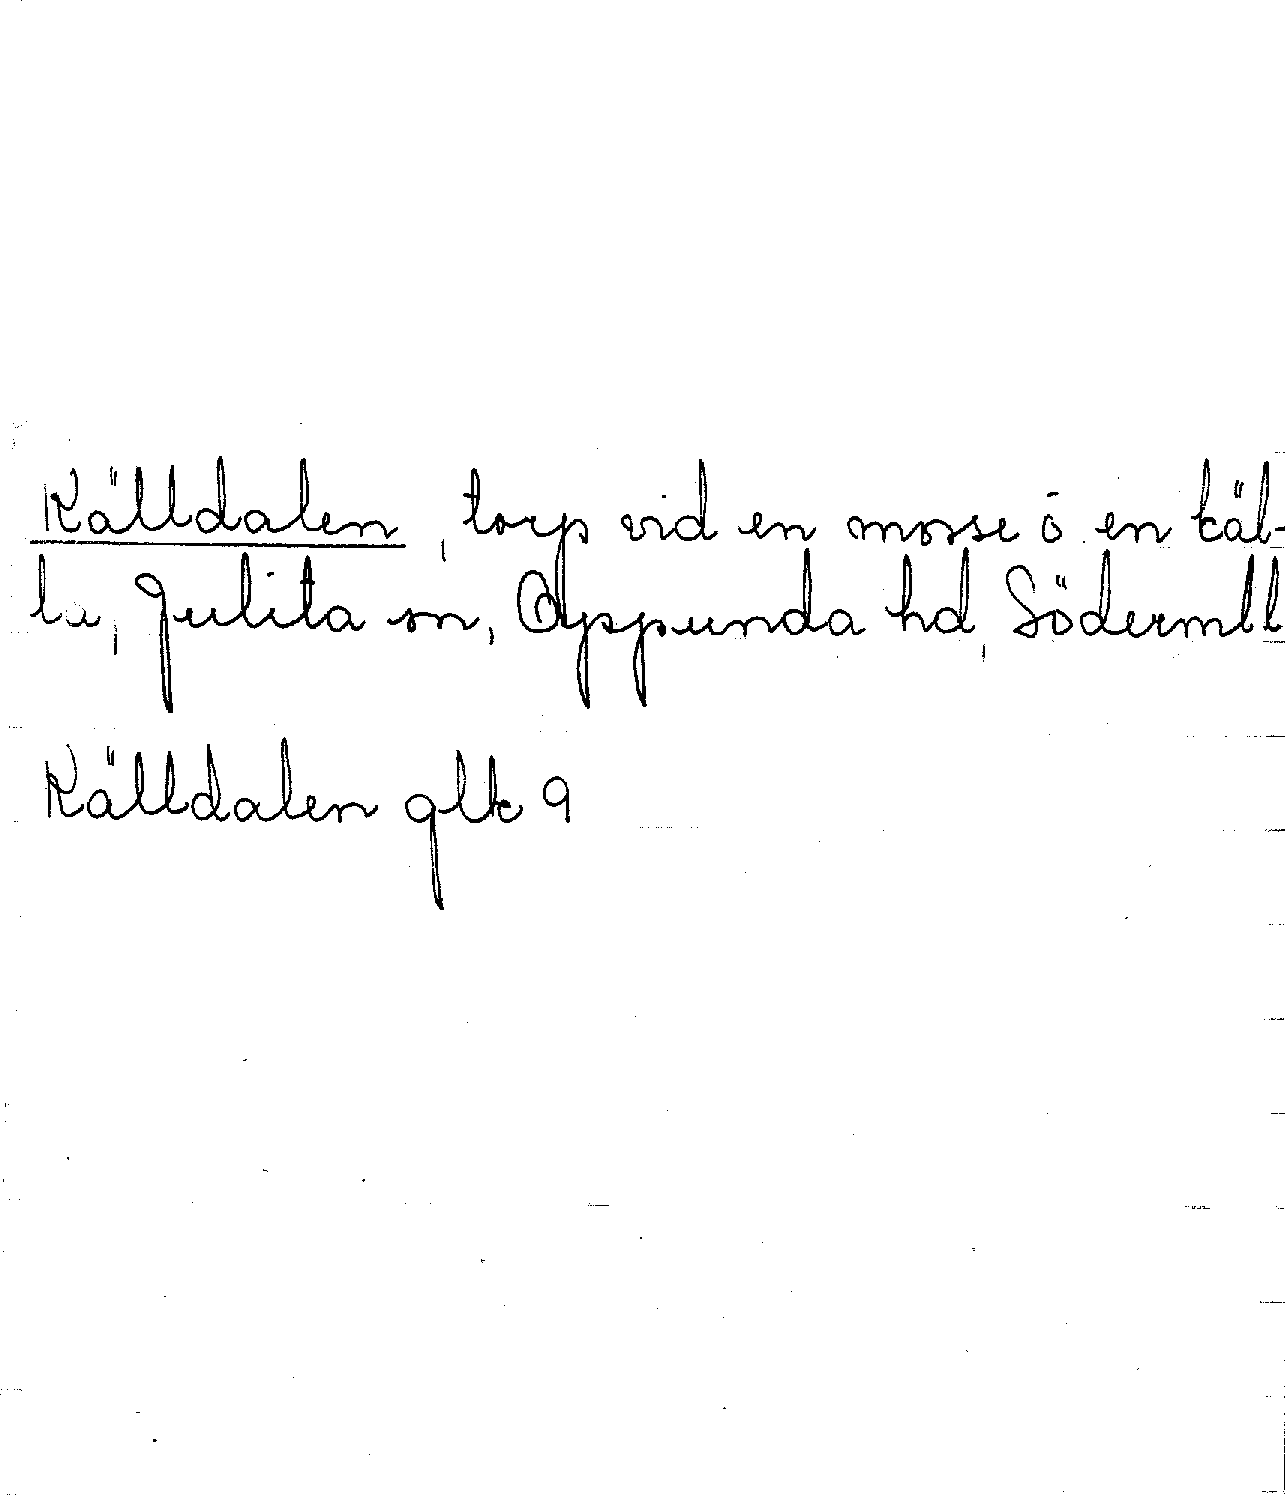 Källdalen, torp vid en mosse o en käl-
la, Julita sn, Oppunda hd, Södermll
Källdalen glk 9